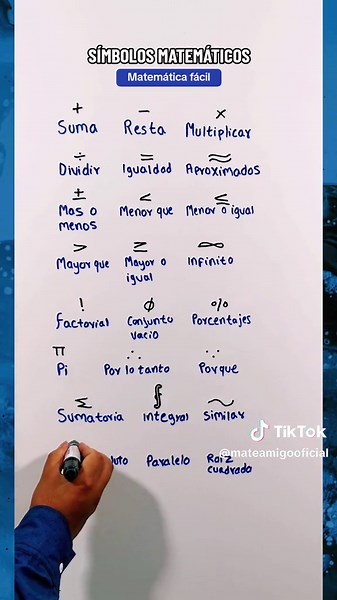 SÍMBOLOS MATEMÁTICOS
Matemática fácil
+ − ×
Suma Resta Multiplicar
÷ = ≈
Dividir Igualdad Aproximados
± < ≤
Mas o menos Menor que Menor o igual
> ≥ ∞
Mayor que Mayor o igual Infinito
! ∅ %
Factorial Conjunto vacio Porcentajes
π ∴ ∵
Pi Por lo tanto Porque
Σ ∮ ~
Sumatoria Integral Similar
TikTok
@mateamigooficial
Paralelo Raiz cuadrada